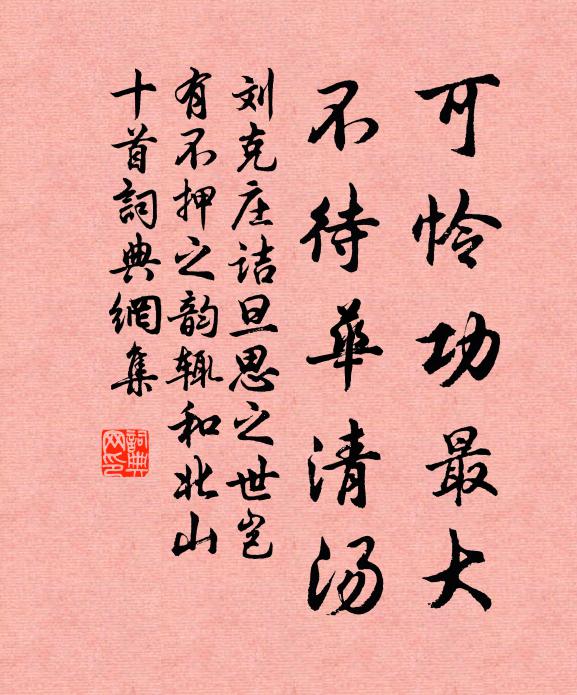 可怜功最大
不待华清汤
刘克庄诘旦思之世岂
有不押之韵辄和北山
十首詞典網集
詞典网印